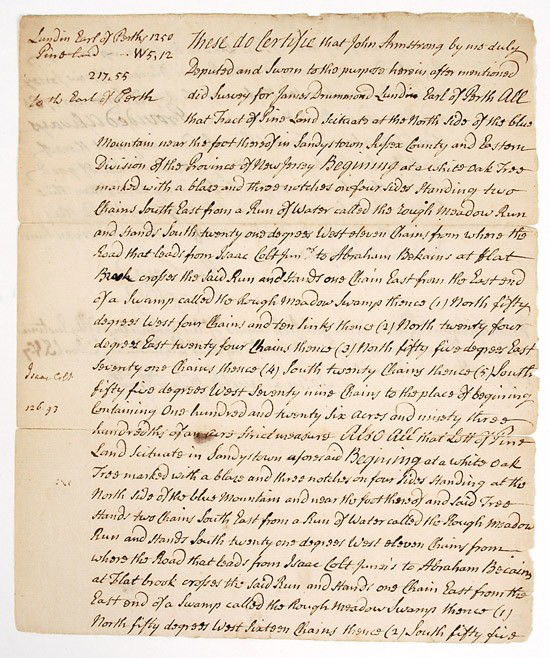 Lundin Earl of Perths 1250
Pine Land W5,12
217.55
To the Earl of Perth
These do Certifie that John Armstrong by me duly
Deputed and Sworn to the purpose herein after mentioned
did Survey for James Drummond Lundin Earl of Perth All
that Tract of Pine Land Scituate at the North Side of the blue
Mountain near the foot thereof in Sandystown Sussex County and Eastern
Division of the Province of New Jersey Begining at a white Oak Tree
marked with a blaze and three notches on four sides Standing two
Chains South East from a Run of Water called the rough Meadow Run
and Stands South twenty one degrees West eleven Chains from where the
Road that leads from Isaac Colt Junr. to Abraham Bekains at flat
Brook crosses the Said Run and Stands one Chain East from the East end
of a Swamp called the Rough Meadow Swamp thence (1) North fifty
degrees West four Chains and ten links thence (2) North twenty four
degrees East twenty four Chains thence (3) North fifty five degrees East
Seventy one Chains thence (4) South twenty Chains thence (5) South
fifty five degrees West Seventy nine Chains to the place of begining
Containing One hundred and twenty six Acres and ninety three
hundredths of an acre Strict measure Also All that Lott of Pine
Land Scituate in Sandystown aforesaid Begining at a white Oak
Tree marked with a blaze and three notches on four Sides Standing at the
North Side of the blue Mountain and near the foot thereof and said Tree
Stands two Chains South East from a Run of Water called the Rough Meadow
Run and Stands South twenty one degrees West eleven Chains from
where the Road that leads from Isaac Colt Junr is to Abraham Becains
at Flatbrook crosses the Said Run and Stands one Chain East from the
East end of a Swamp called the Rough Meadow Swamp thence (1)
North fifty degrees West Sixteen Chains thence (2) South fifty five
Isaac Colt
126.93